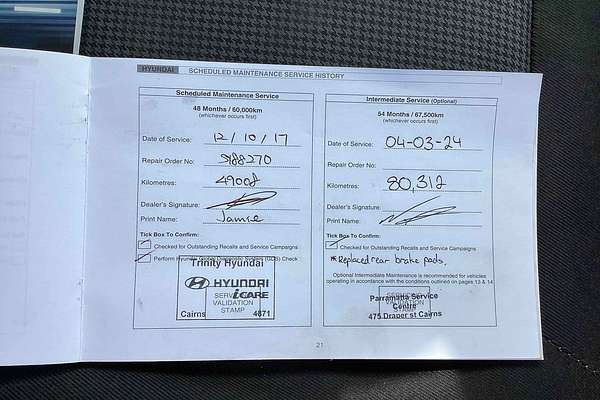 HYUNDAI SCHEDULED MAINTENANCE SERVICE HISTORY
Scheduled Maintenance Service
48 Months / 60,000km
(whichever occurs first)
Date of Service: 12/10/17
Repair Order No:
Kilometres: 49008
Dealer's Signature:
Print Name: Jamie
Tick Box To Confirm:
Checked for Outstanding Recalls and Service Campaigns
Perform Hyundai Check
Trinity Hyundai
HYUNDAI
iCARE
SERVICE
VALIDATION
STAMP
Cairns 4871
Intermediate Service (Optional)
54 Months / 67,500km
(whichever occurs first)
Date of Service: 04-03-24
Repair Order No:
Kilometres: 80,312
Dealer's Signature:
Print Name:
Tick Box To Confirm:
Checked for Outstanding Recalls and Service Campaigns
*Replaced rear brake pads.
Optional Intermediate Maintenance is recommended for vehicles
operating in accordance with the conditions outlined on pages 13 & 14
SERVICE
Parramatta Service
VALIDATION
Centre
STAMP
475 Draper st Cairns
21